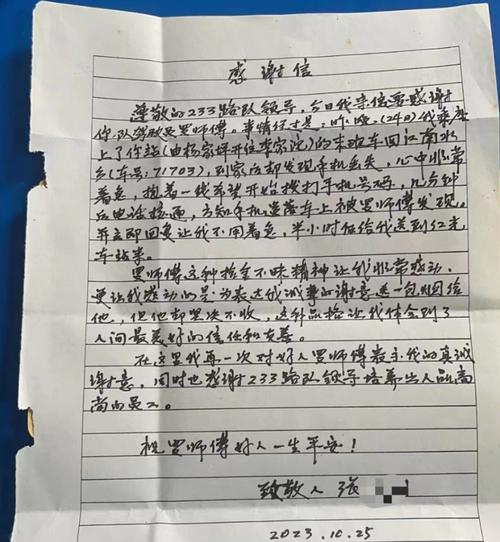 感谢信
尊敬的233路队领导，今日我来信要感谢
你队驾驶员罗师傅。事情经过是：昨晚(24日)我乘座
上了你站(由杨家坪开往李家沱)的末班车回江南水
乡(车号：71703)，到家后却发现手机丢失，心中非常
着急，抱着一线希望开始拨打手机号码，几分钟
后电话接通，方知手机遗落车上被罗师傅发现。
并立即回复让我不用着急，半小时后给我送到红光
车站来。
罗师傅这种拾金不昧精神让我非常感动、
更让我感动的是为表达我诚挚的谢意送一包烟给
他，但他却坚决不收，这种品格让我体会到了
人间最美好的信任和友善。
在这里我再一次对好人罗师傅表示我的真诚
谢意，同时也感谢233路队领导培养出人品高
尚的员工。
祝罗师傅好人一生平安！
致敬人 张
2023.10.25